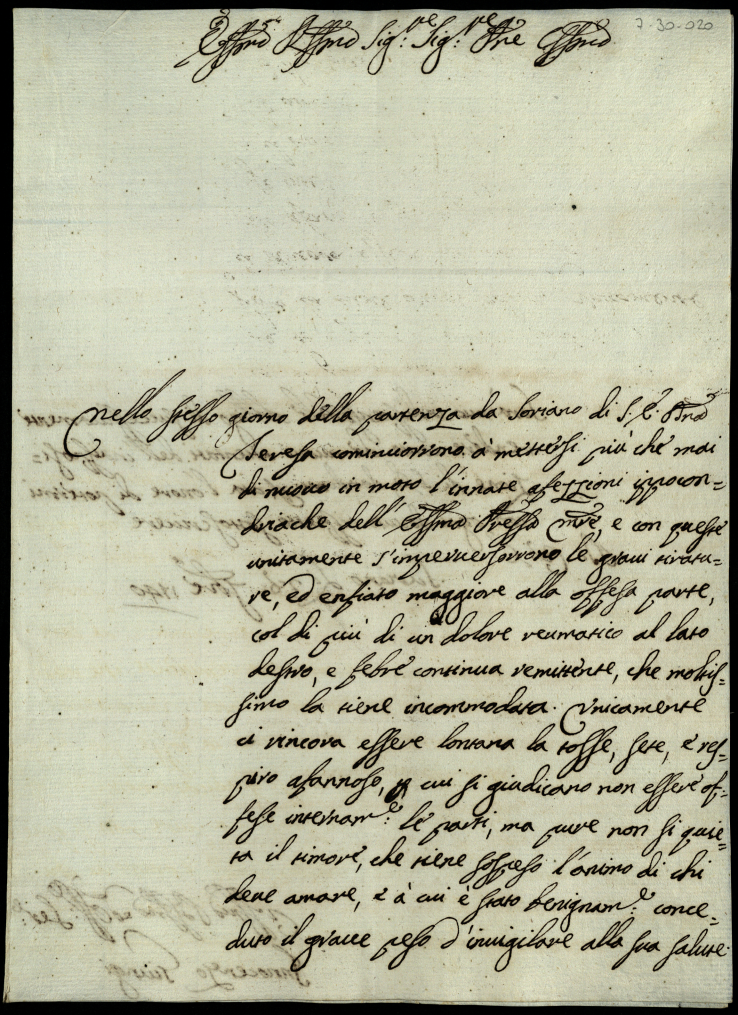 7-30-020
Ecc.mo Ill.mo Sig.re Sig.re Pne
nello stesso giorno della partenza da Soriano di S. E. Pnã
Teresa cominciorrono à mettersi più che mai
di nuovo in moto l'innate afezzioni ippocon=
driache dell' Ecc.ma P.ressa mre, e con queste
unitamente s'imperversorrono le gravi tiratu=
re, ed enfiato maggiore alla offesa parte,
col di più di un dolore reumatico al lato
destro, e febre continua remittente, che moltis=
simo la tiene incommodata. Unicamente
ci rincora essere lontana la tosse, sete, e res=
piro afannoso, p cui si giudicano non essere of=
fese internam.e le parti, ma pure non si quie=
ta il timore, che tiene sospeso l'animo di chi
deve amare, e à cui è stato benignam.e conce=
duto il grave peso d'invigilare alla sua salute